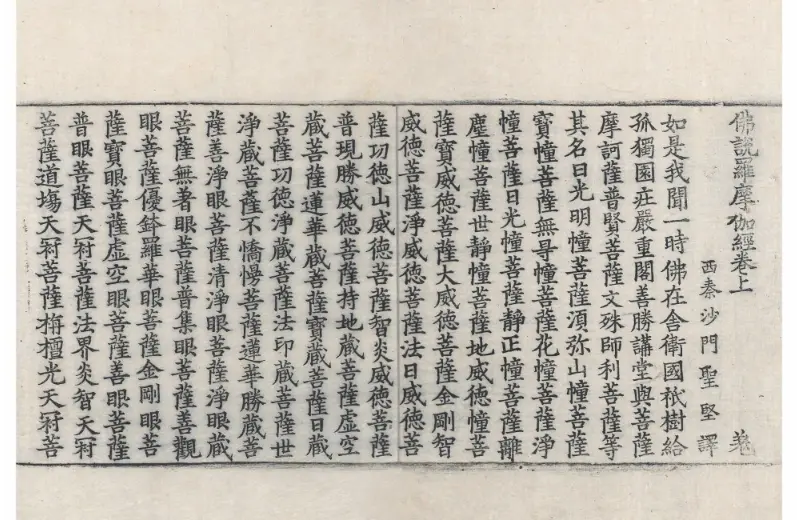 佛說羅摩伽經卷上
羌
西秦沙門聖堅譯
如是我聞一時佛在舍衛國祇樹給
孤獨園莊嚴重閣善勝講堂與菩薩
摩訶薩普賢菩薩文殊師利菩薩等
其名曰光明幢菩薩湏弥山幢菩薩
寶幢菩薩無㝵幢菩薩花幢菩薩淨
幢菩薩日光幢菩薩靜正幢菩薩離
塵幢菩薩世靜幢菩薩地威德幢菩
薩寶威德菩薩大威德菩薩金剛智
威德菩薩淨威德菩薩法日威德菩
薩功德山威德菩薩智炎威德菩薩
普現勝威德菩薩持地藏菩薩虛空
藏菩薩蓮華藏菩薩寶藏菩薩日藏
菩薩功德淨藏菩薩法印藏菩薩世
淨藏菩薩不憍慢菩薩蓮華勝藏菩
薩善淨眼菩薩清淨眼菩薩淨眼藏
菩薩無著眼菩薩普集眼菩薩善觀
眼菩薩優鉢羅華眼菩薩金剛眼菩
薩寶眼菩薩虛空眼菩薩善眼菩薩
普眼菩薩天冠菩薩法界炎智天冠
菩薩道場天冠菩薩栴檀光天冠菩